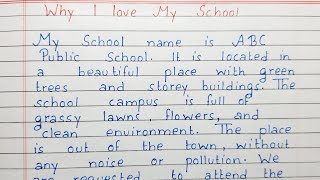 Why I love My School
My School name is ABC
Public School. It is located in
a beautiful place with green
trees and storey buildings. The
school campus is full of
grassy lawns, flowers, and
clean environment. The place
is out of the town, without
any noice or pollution. We
are requested to attend the